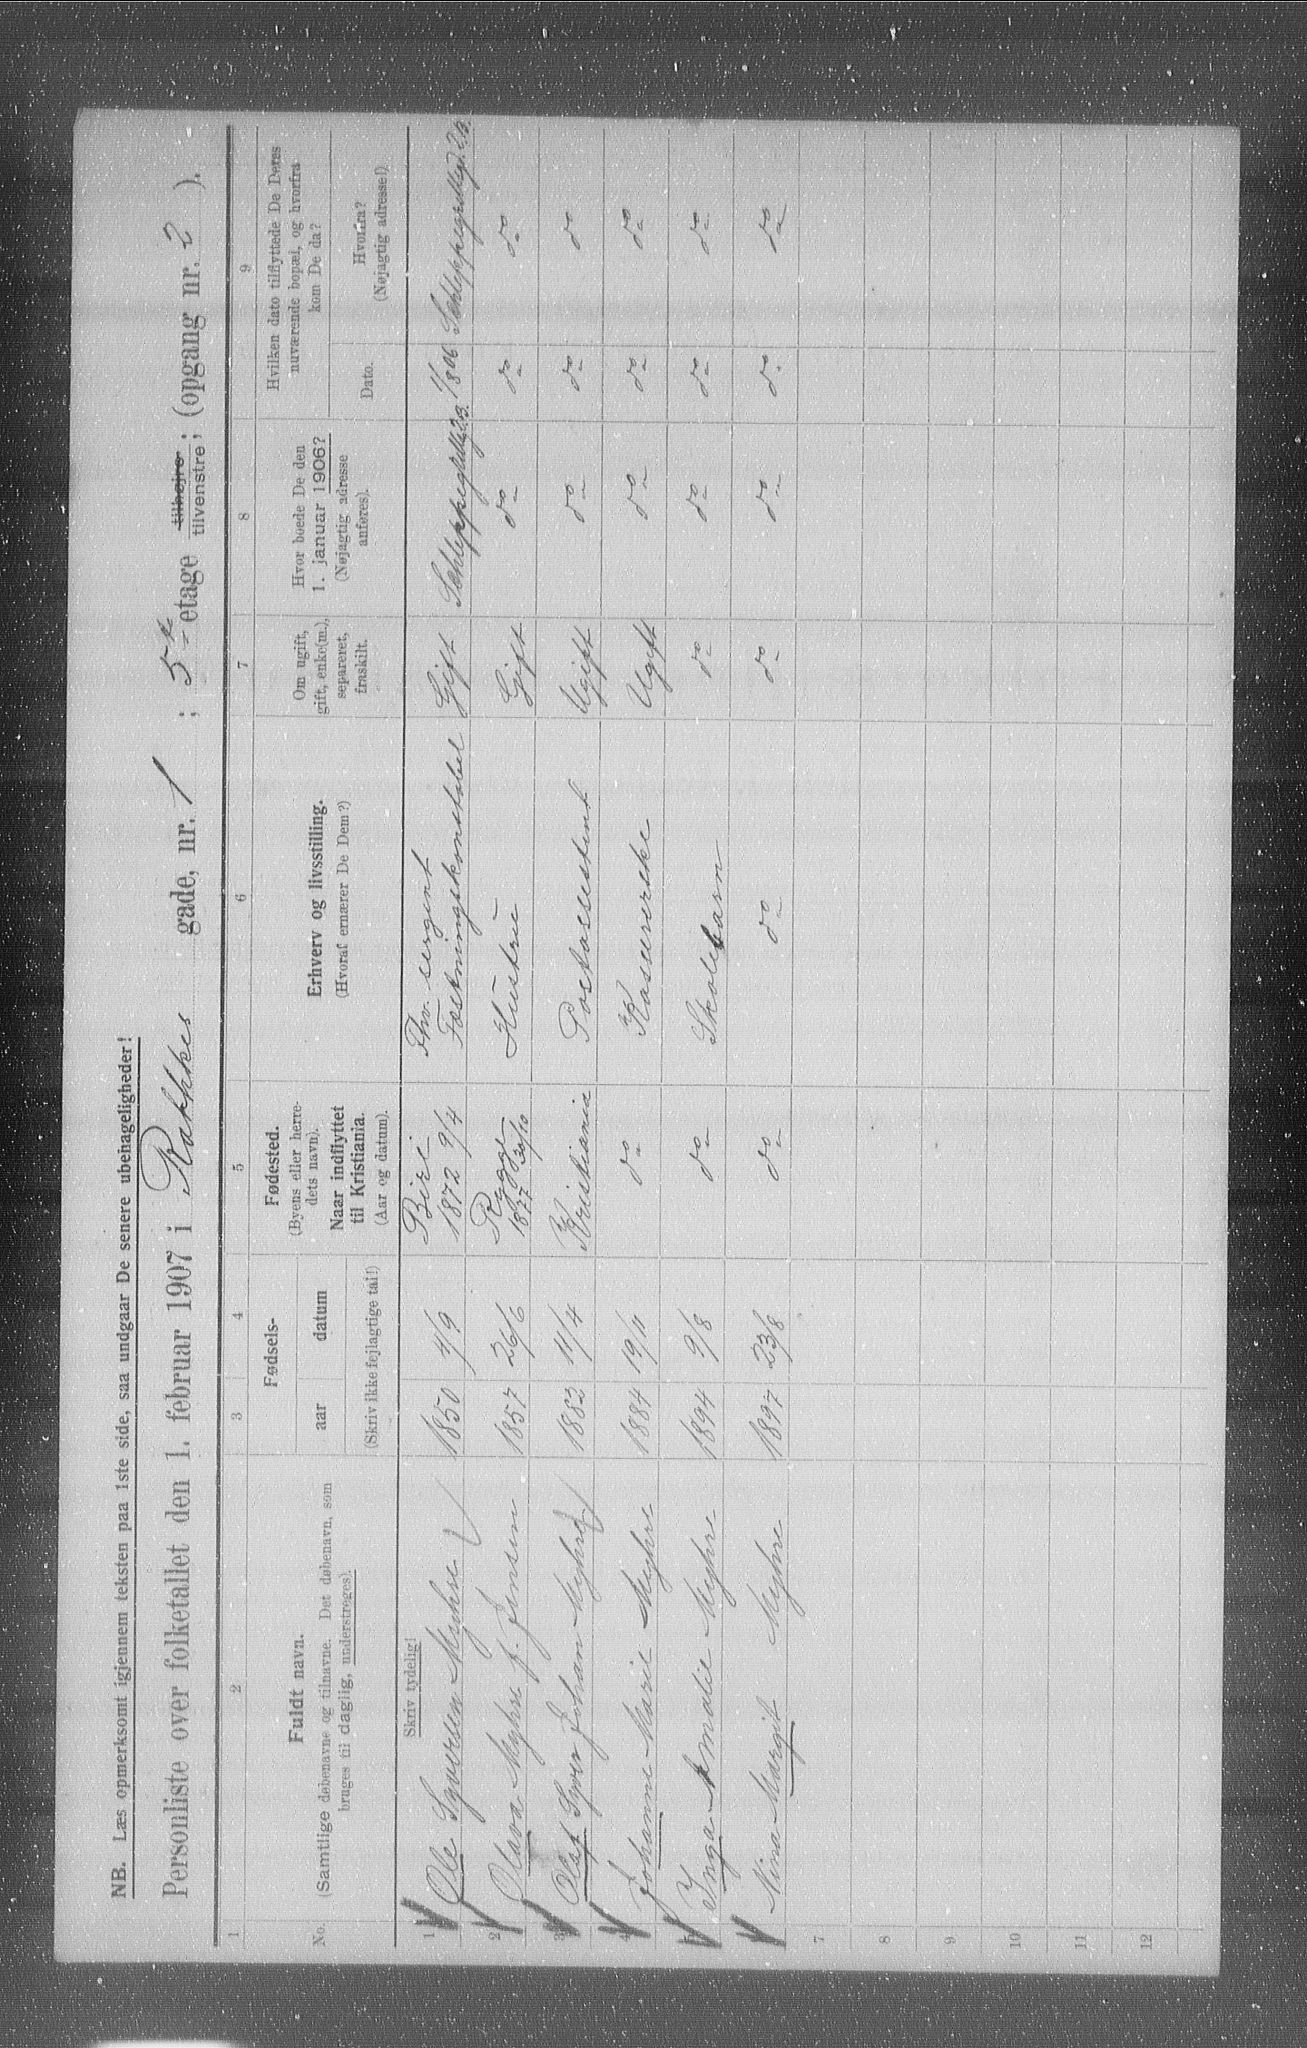 NB. Læs opmerksomt igjennem teksten paa 1ste side, saa undgaar De senere ubehageligheder!
Personliste over folketallet den 1. februar 1907 i Rakkes gade, nr. 1 ; 5te etage tilhøjre tilvenstre; (opgang nr. 2 ).
1 2 3 4 5 6 7 8 9
No.
Fuldt navn.
(Samtlige døbenavne og tilnavne. Det døbenavn, som
bruges til daglig, understreges).
Skriv tydelig!
Fødsels-
aar datum
(Skriv ikke fejlagtige tal!)
Fødested.
(Byens eller herre-
dets navn).
Naar indflyttet
til Kristiania.
(Aar og datum).
Erhverv og livsstilling.
(Hvoraf ernærer De Dem?)
Om ugift,
gift, enke(m.),
separeret,
fraskilt.
Hvor boede De den
1. januar 1906?
(Nøjagtig adresse
anføres).
Hvilken dato tilflyttede De Deres
nuværende bopæl, og hvorfra
kom De da?
Dato.
Hvorfra?
(Nøjagtig adresse!)
1 Ole Syversen Myhre 1850 4/9 Biri 1872 9/4 Fhv. sergint Fæstningskonstabel Gift
2 Olava Myhre f. Jensen 1857 26/6 Rygge 1877 30/10 Hustru Gift do do do
3 Olaf Syver Johan Myhre 1882 14/4 Kristiania Postassistent Ugift do do do
4 Johanne Marie Myhre 1884 19/11 do Kasererske Ugift do do do
5 Inga Amalie Myhre 1894 9/8 do Skolebarn do do do do
6 Nina Margit Myhre 1897 23/8 do do do do do do
7
8
9
10
11
12